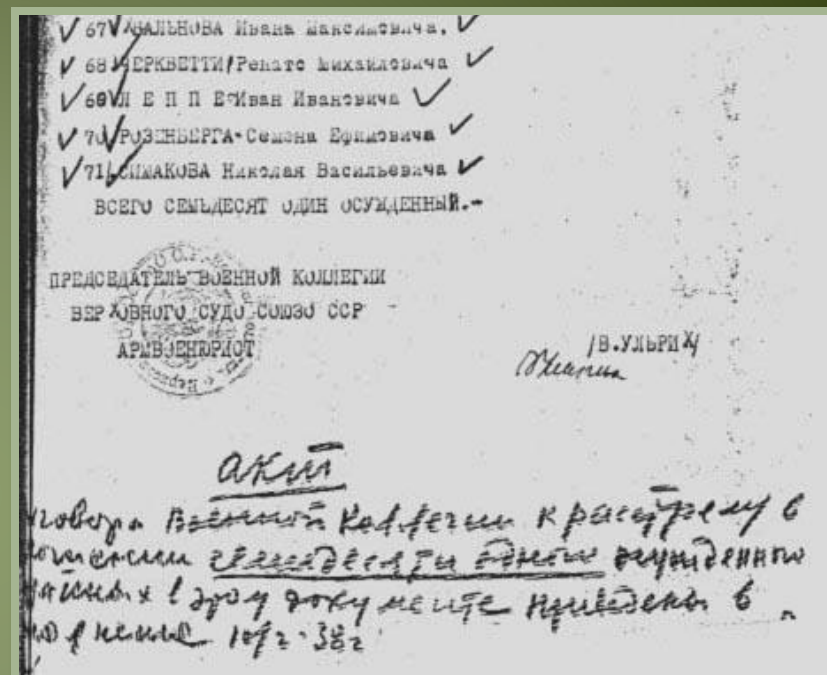 67 ХВАЛЬНОВА Ивана Максимовича,
68 ЧЕРКВЕТТИ/Ренато Михайловича
69 Л Е П П Е Иван Ивановича
70 РОЗЕНБЕРГА Семена Ефимовича
71 СИМАКОВА Николая Васильевича
ВСЕГО СЕМЬДЕСЯТ ОДИН ОСУЖДЕННЫЙ.-
ПРЕДСЕДАТЕЛЬ ВОЕННОЙ КОЛЛЕГИИ
ВЕРХОВНОГО СУДО СОЮЗО ССР
АРМВОЕНЮРИСТ
/В.УЛЬРИХ/
акт
говора Военной Коллегии к расстрелу в
ношении семидесяти одного осужденного
занных в этом документе приведены в
полнение 38г